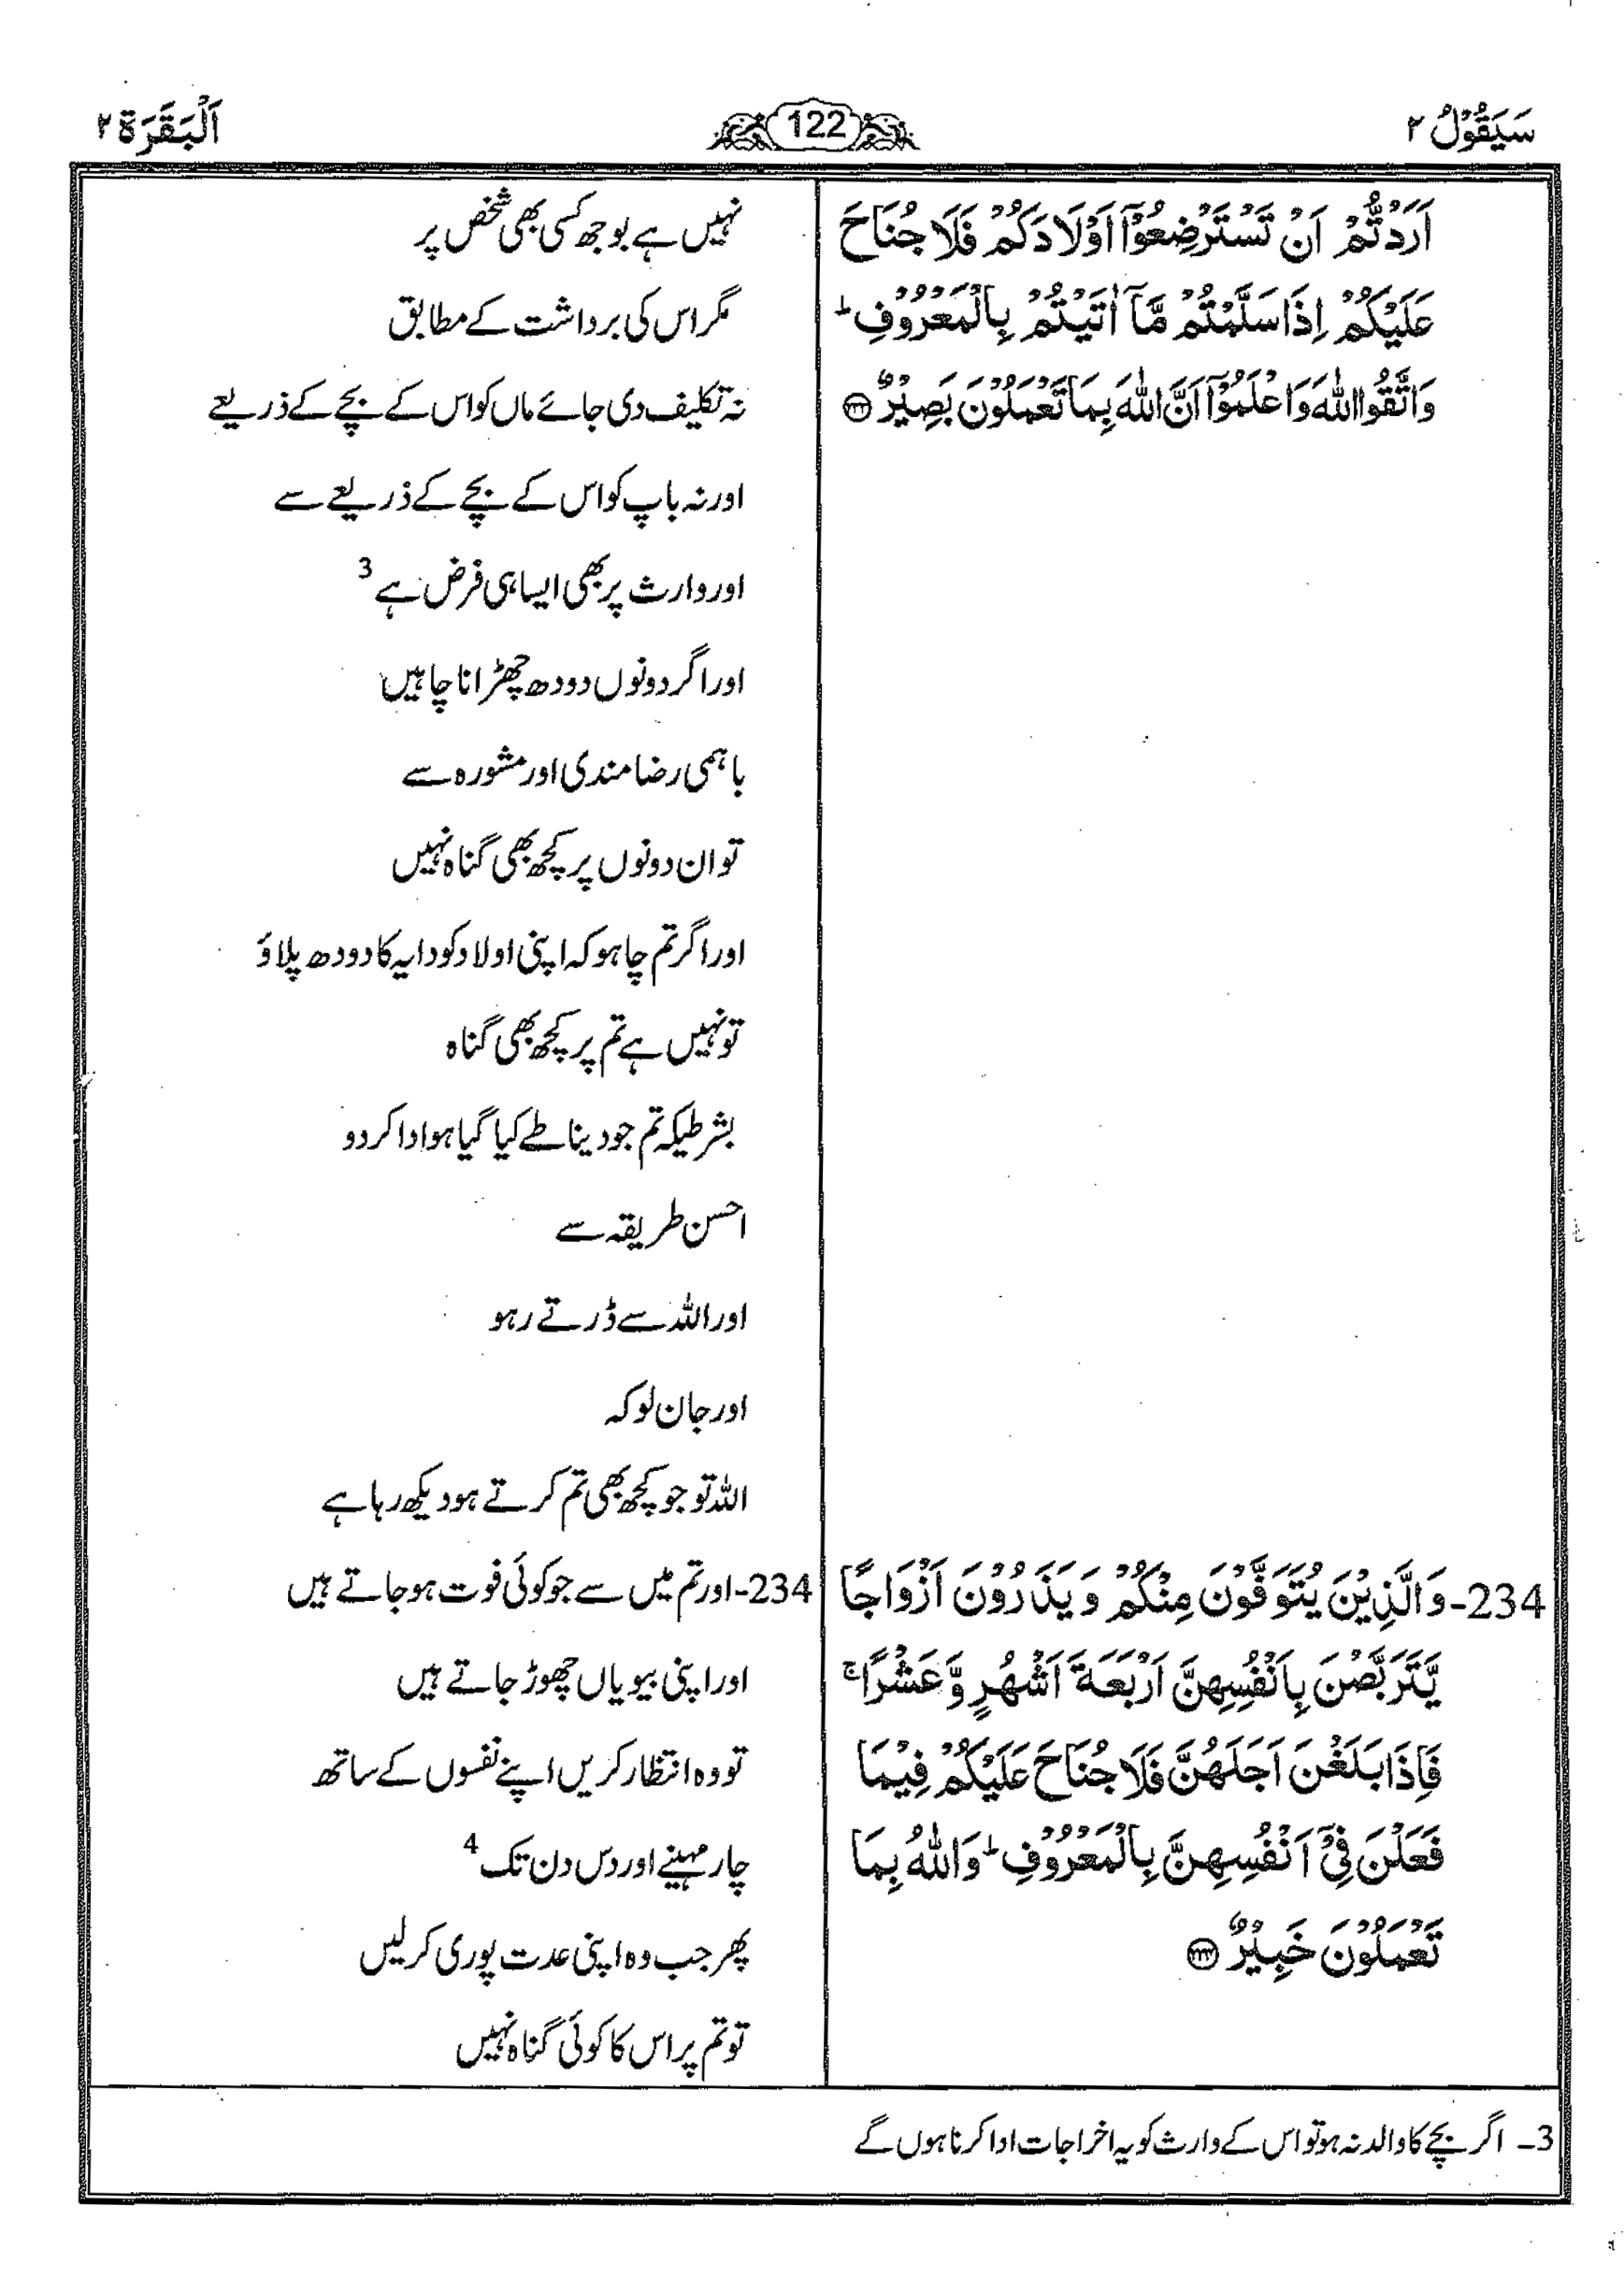 سَيَقُوْلُ ٢
122
اَلْبَقَرَة ٢
اَرَدْتُّمْ اَنْ تَسْتَرْضِعُوْٓا اَوْلَادَكُمْ فَلَا جُنَاحَ
عَلَيْكُمْ اِذَا سَلَّمْتُمْ مَّآ اٰتَيْتُمْ بِالْمَعْرُوْفِ ؕ
وَاتَّقُوا اللّٰهَ وَاعْلَمُوْٓا اَنَّ اللّٰهَ بِمَا تَعْمَلُوْنَ بَصِيْرٌ ۝۲۳۳
234-وَالَّذِيْنَ يُتَوَفَّوْنَ مِنْكُمْ وَيَذَرُوْنَ اَزْوَاجًا
يَّتَرَبَّصْنَ بِاَنْفُسِهِنَّ اَرْبَعَةَ اَشْهُرٍ وَّعَشْرًا ۚ
فَاِذَا بَلَغْنَ اَجَلَهُنَّ فَلَا جُنَاحَ عَلَيْكُمْ فِيْمَا
فَعَلْنَ فِيْٓ اَنْفُسِهِنَّ بِالْمَعْرُوْفِ ؕ وَاللّٰهُ بِمَا
تَعْمَلُوْنَ خَبِيْرٌ ۝۲۳۴
نہیں ہے بوجھ کسی بھی شخص پر
مگر اس کی برداشت کے مطابق
نہ تکلیف دی جائے ماں کو اس کے بچے کے ذریعے
اور نہ باپ کو اس کے بچے کے ذریعے سے
اور وارث پر بھی ایسا ہی فرض ہے 3
اور اگر دونوں دودھ چھڑانا چاہیں
باہمی رضا مندی اور مشورہ سے
تو ان دونوں پر کچھ بھی گناہ نہیں
اور اگر تم چاہو کہ اپنی اولاد کو دایہ کا دودھ پلاؤ
تو نہیں ہے تم پر کچھ بھی گناہ
بشرطیکہ تم جو دینا طے کیا گیا ہو ادا کر دو
احسن طریقہ سے
اور اللہ سے ڈرتے رہو
اور جان لو کہ
اللہ تو جو کچھ بھی تم کرتے ہو دیکھ رہا ہے
234-اور تم میں سے جو کوئی فوت ہو جاتے ہیں
اور اپنی بیویاں چھوڑ جاتے ہیں
تو وہ انتظار کریں اپنے نفسوں کے ساتھ
چار مہینے اور دس دن تک 4
پھر جب وہ اپنی عدت پوری کر لیں
تو تم پر اس کا کوئی گناہ نہیں
3- اگر بچے کا والد نہ ہو تو اس کے وارث کو یہ اخراجات ادا کرنا ہوں گے